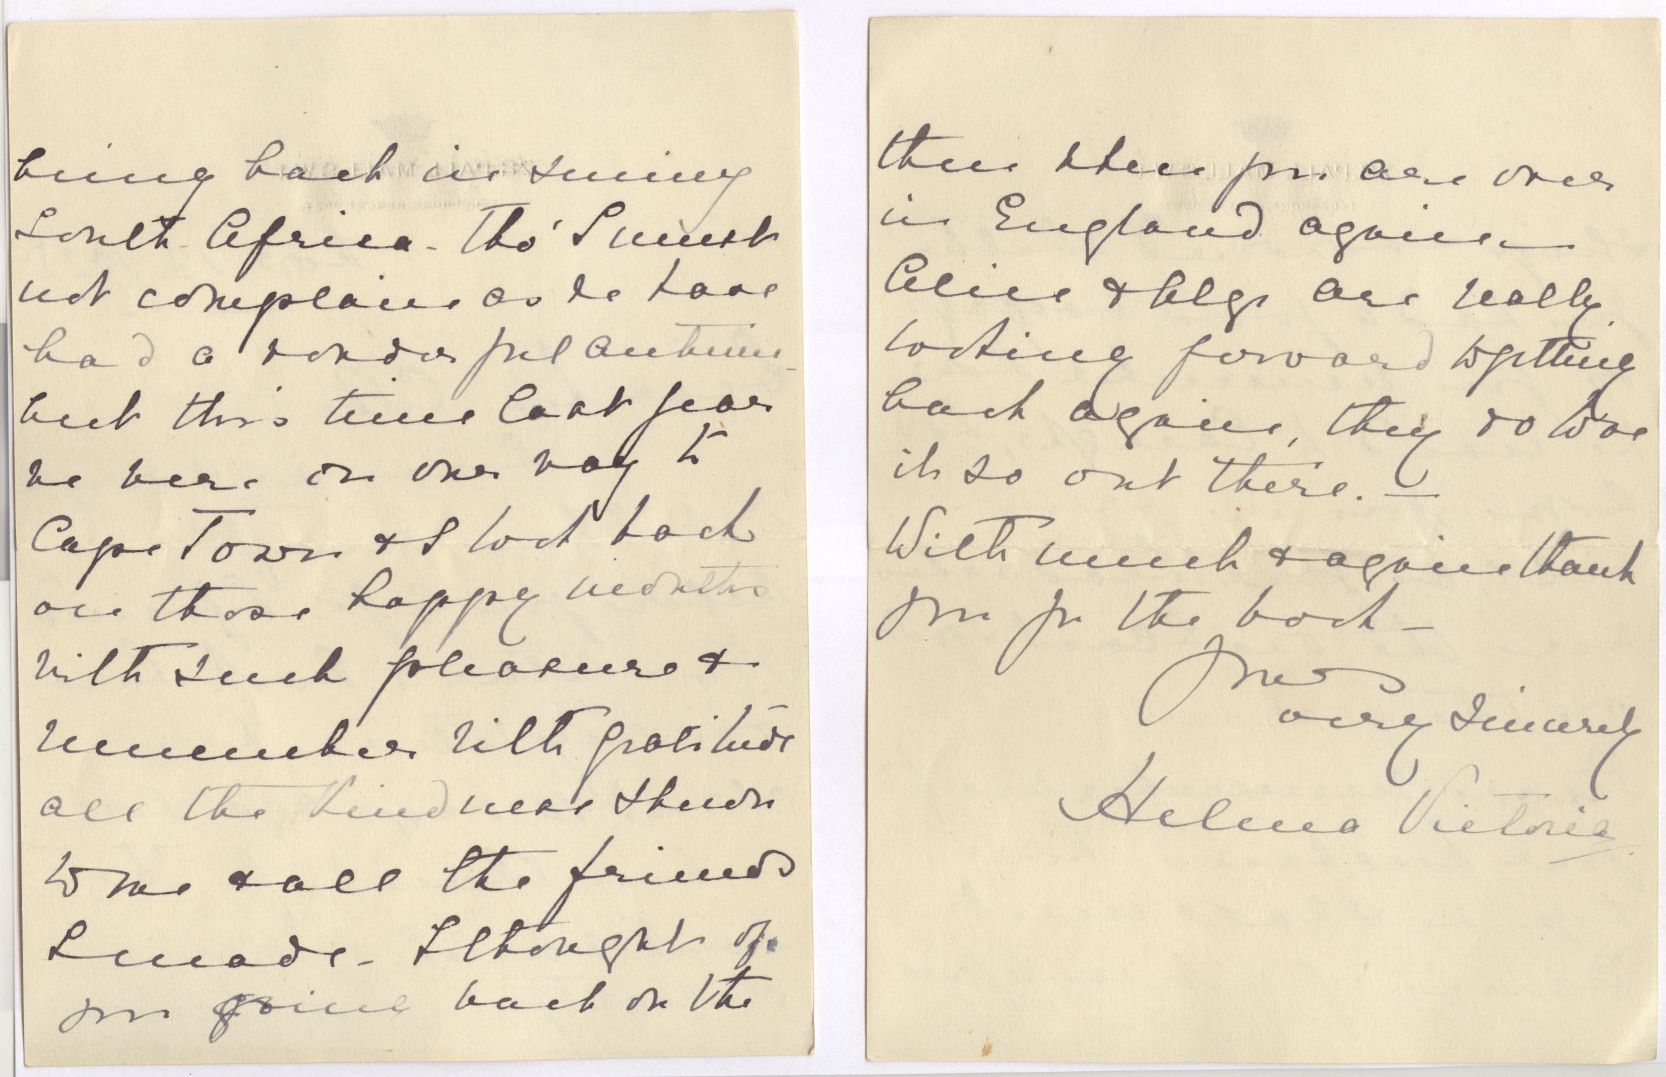 being back in sunny
South Africa - tho' I must
not complain as we have
had a wonderful autumn -
but this time last year
we were on our way to
Cape Town & I look back
on those happy months
with such pleasure &
remember with gratitude
all the kindness shewn
to me & all the friends
I made - I thought of
you going back on the
then when you are over
in England again -
Alice & Alge are really
looking forward to getting
back again, they do love
it so out there. -
With much & again thank
you for the book -
Yours
very sincerely
Helena Victoria